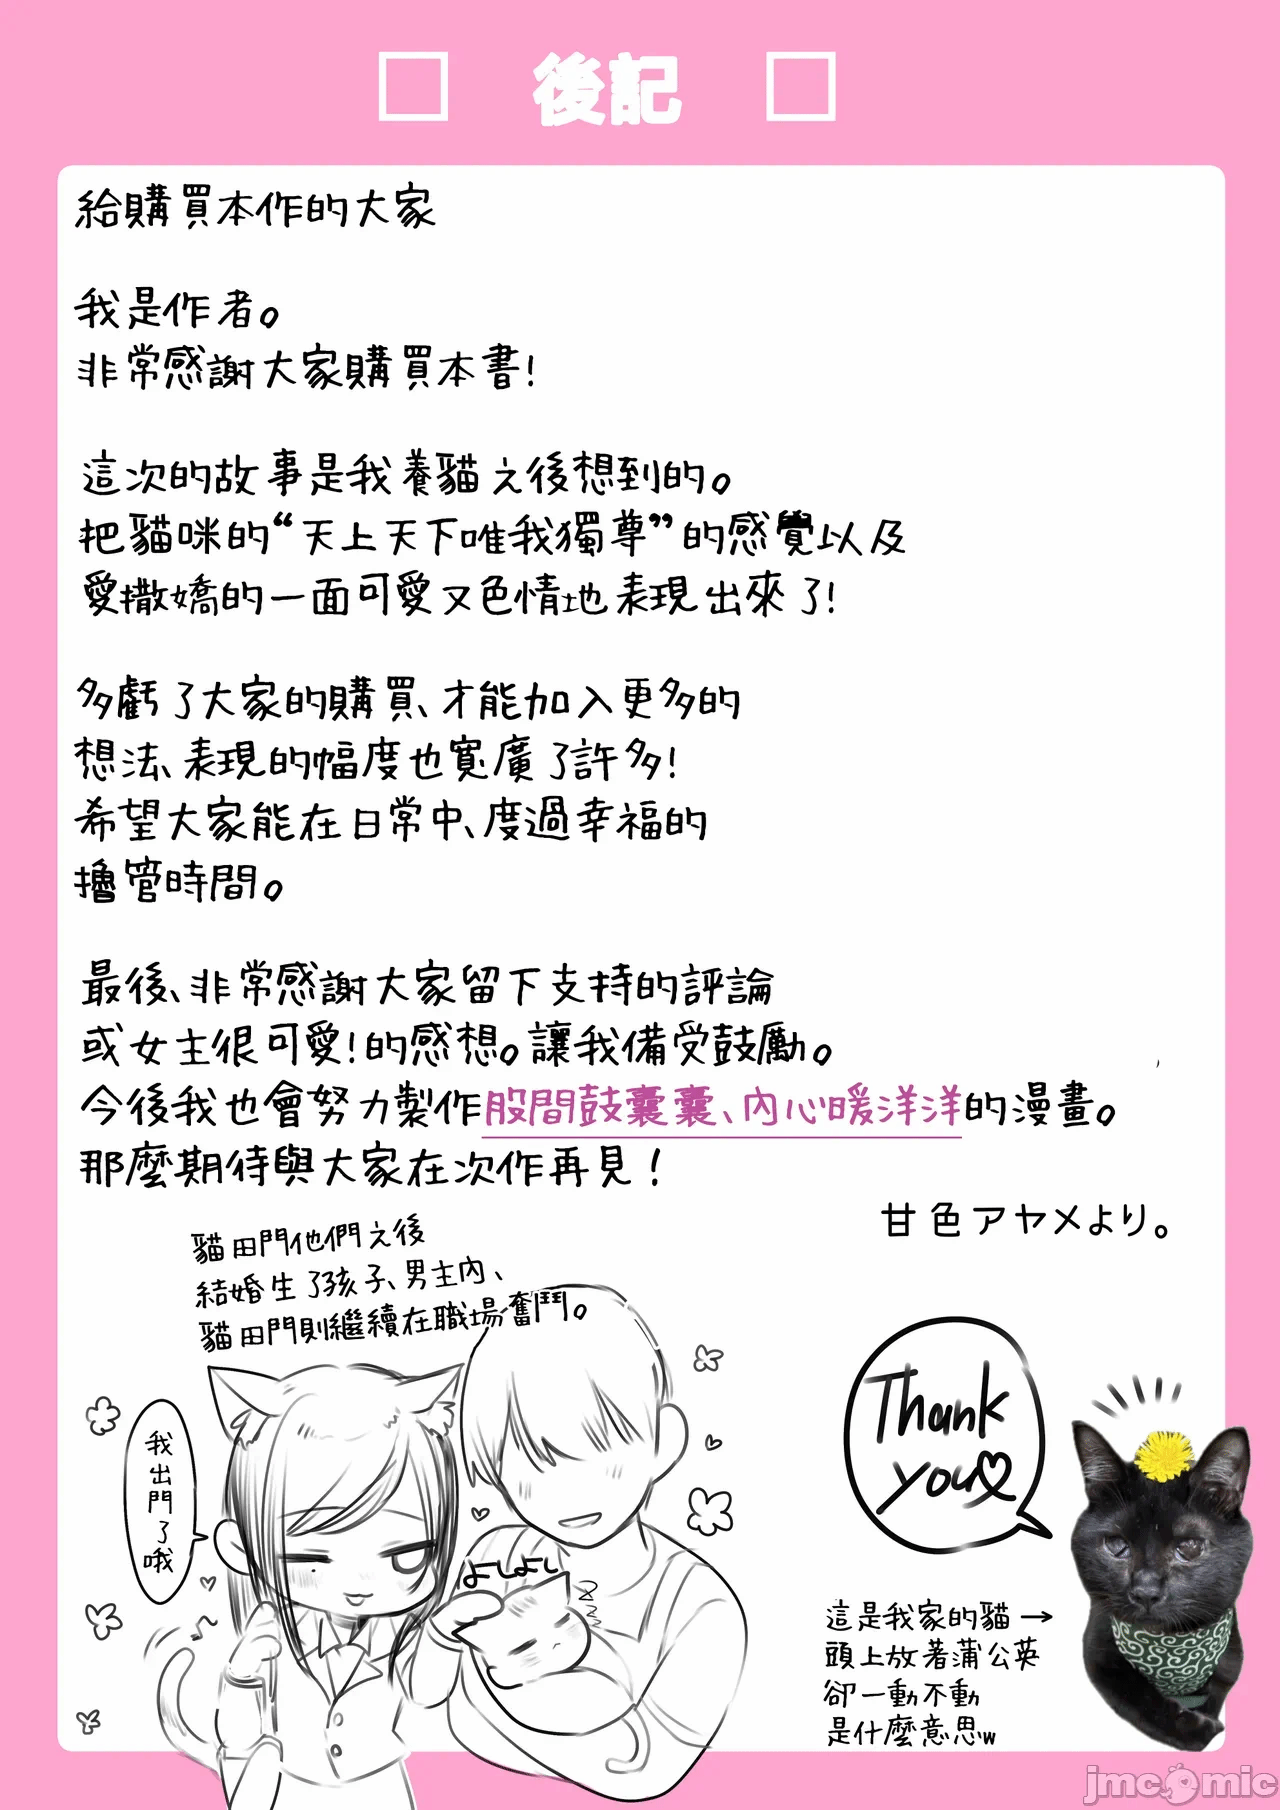 □ 後記 □
給購買本作的大家
我是作者。
非常感謝大家購買本書!
這次的故事是我養貓之後想到的。
把貓咪的“天上天下唯我獨尊”的感覺以及
愛撒嬌的一面可愛又色情地表現出來了!
多虧了大家的購買、才能加入更多的
想法、表現的幅度也寬廣了許多!
希望大家能在日常中、度過幸福的
擼管時間。
最後、非常感謝大家留下支持的評論
或女主很可愛!的感想。讓我備受鼓勵。
今後我也會努力製作股間鼓囊囊、內心暖洋洋的漫畫。
那麼期待與大家在次作再見!
甘色アヤメより。
貓田門他們之後
結婚生了孩子、男主內、
貓田門則繼續在職場奮鬥。
我出門了哦
よしよし
Thank
you♡
這是我家的貓→
頭上放著蒲公英
卻一動不動
是什麼意思w
jmcomic